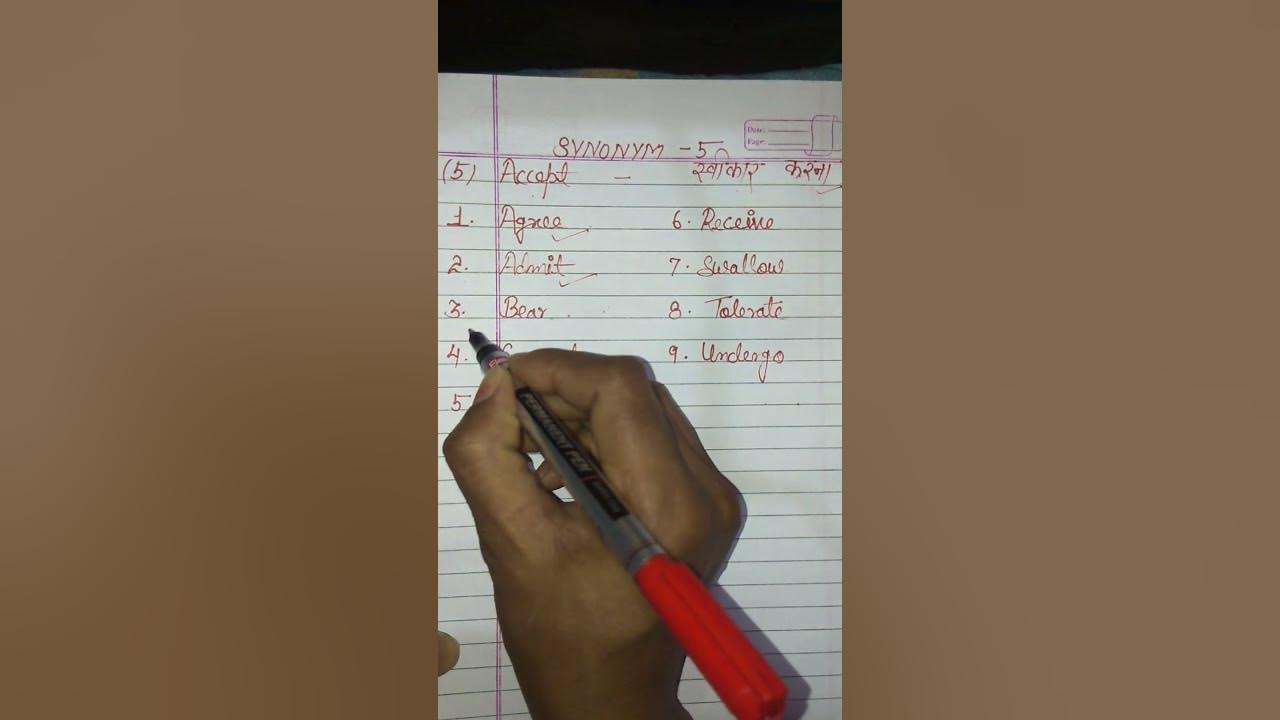 Date:
Page:
SYNONYM - 5
(5) Accept - स्वीकार करना
1. Agree 6. Receive
2. Admit 7. Swallow
3. Bear 8. Tolerate
4. 9. Undergo
5
PERMANENT PEN